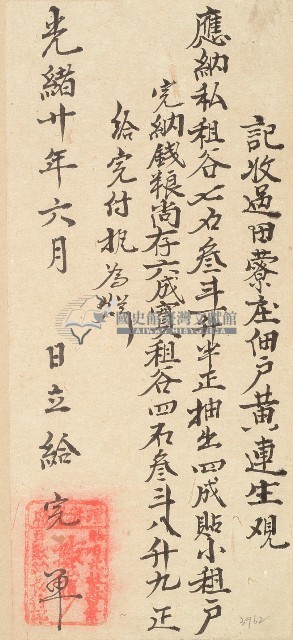 記收過田藔庄佃戶黃連生观
應納私租谷七石叁斗 半正抽出四成貼小租戶
完納錢粮尚存六成 租谷四石叁斗八升九正
給完付扼為炤
光緒廿年六月 日立給完單
國史館臺灣文獻館
3962